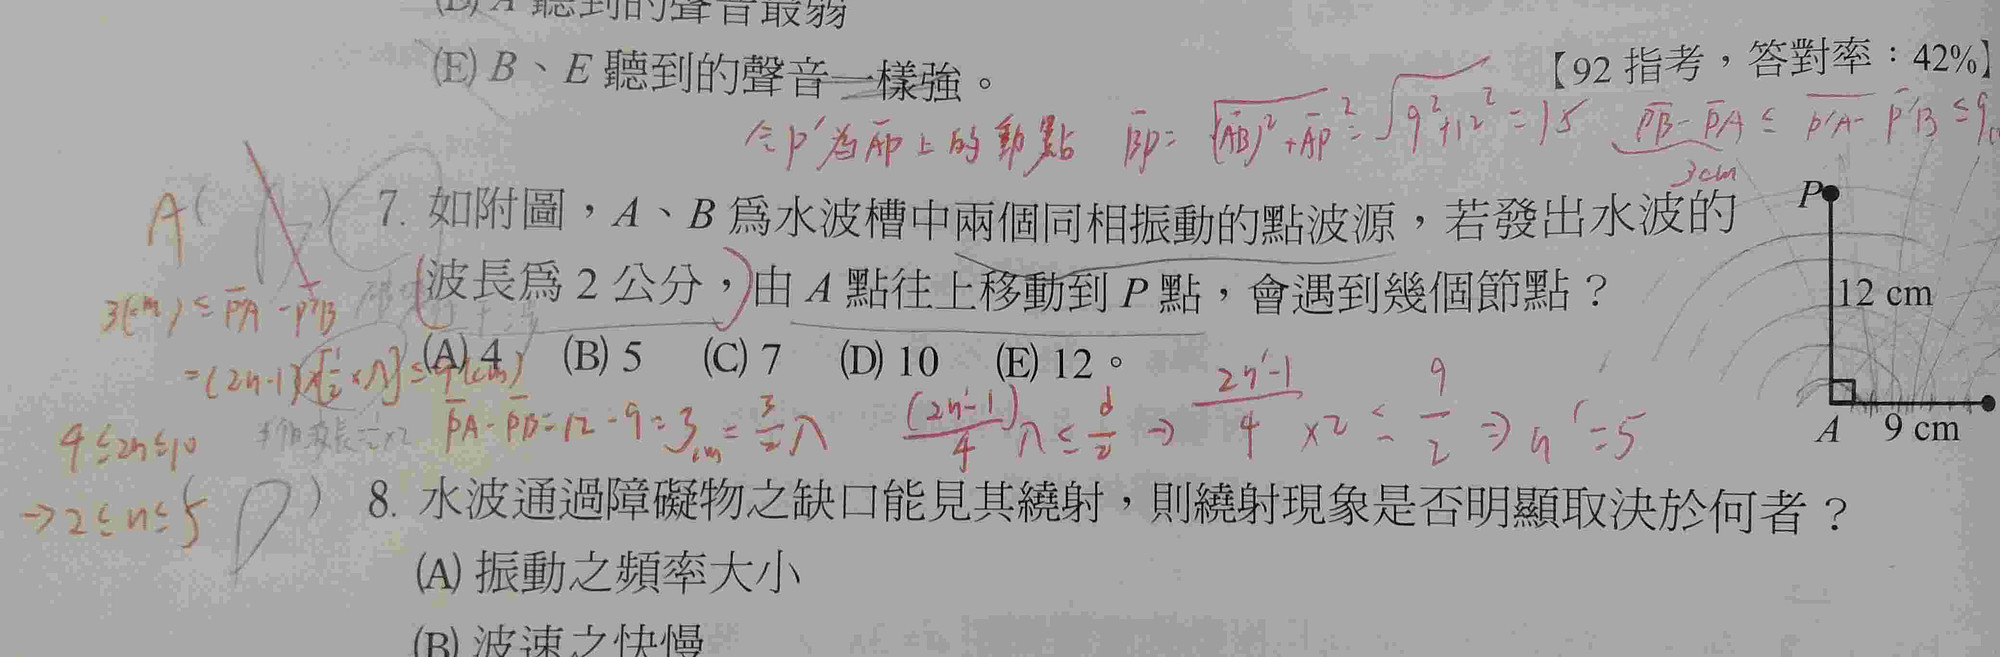 聽到的聲音最弱
(E) B、E 聽到的聲音一樣強。
【92 指考,答對率:42%】
令P'為AP上的動點 BP= √(AB)²+AP² = √9²+12² = 15 PB-PA ≤ P'A- P'B ≤ 9
3cm
A( ) 7. 如附圖,A、B 爲水波槽中兩個同相振動的點波源,若發出水波的
波長爲 2 公分,由 A 點往上移動到 P 點,會遇到幾個節點?
(A) 4 (B) 5 (C) 7 (D) 10 (E) 12。
P
12 cm
A 9 cm
3(cm) ≤ PA - P'B
=(2n-1)×[½×λ] ≤ 9(cm)
4 ≤ 2n ≤ 10
→ 2 ≤ n ≤ 5
PA-PB=12-9=3cm=3/2λ (2n'-1)/4 λ ≤ d/2 → (2n'-1)/4 ×2 ≤ 9/2 ⇒ n'=5
(D) 8. 水波通過障礙物之缺口能見其繞射,則繞射現象是否明顯取決於何者?
(A) 振動之頻率大小
(B) 波速之快慢